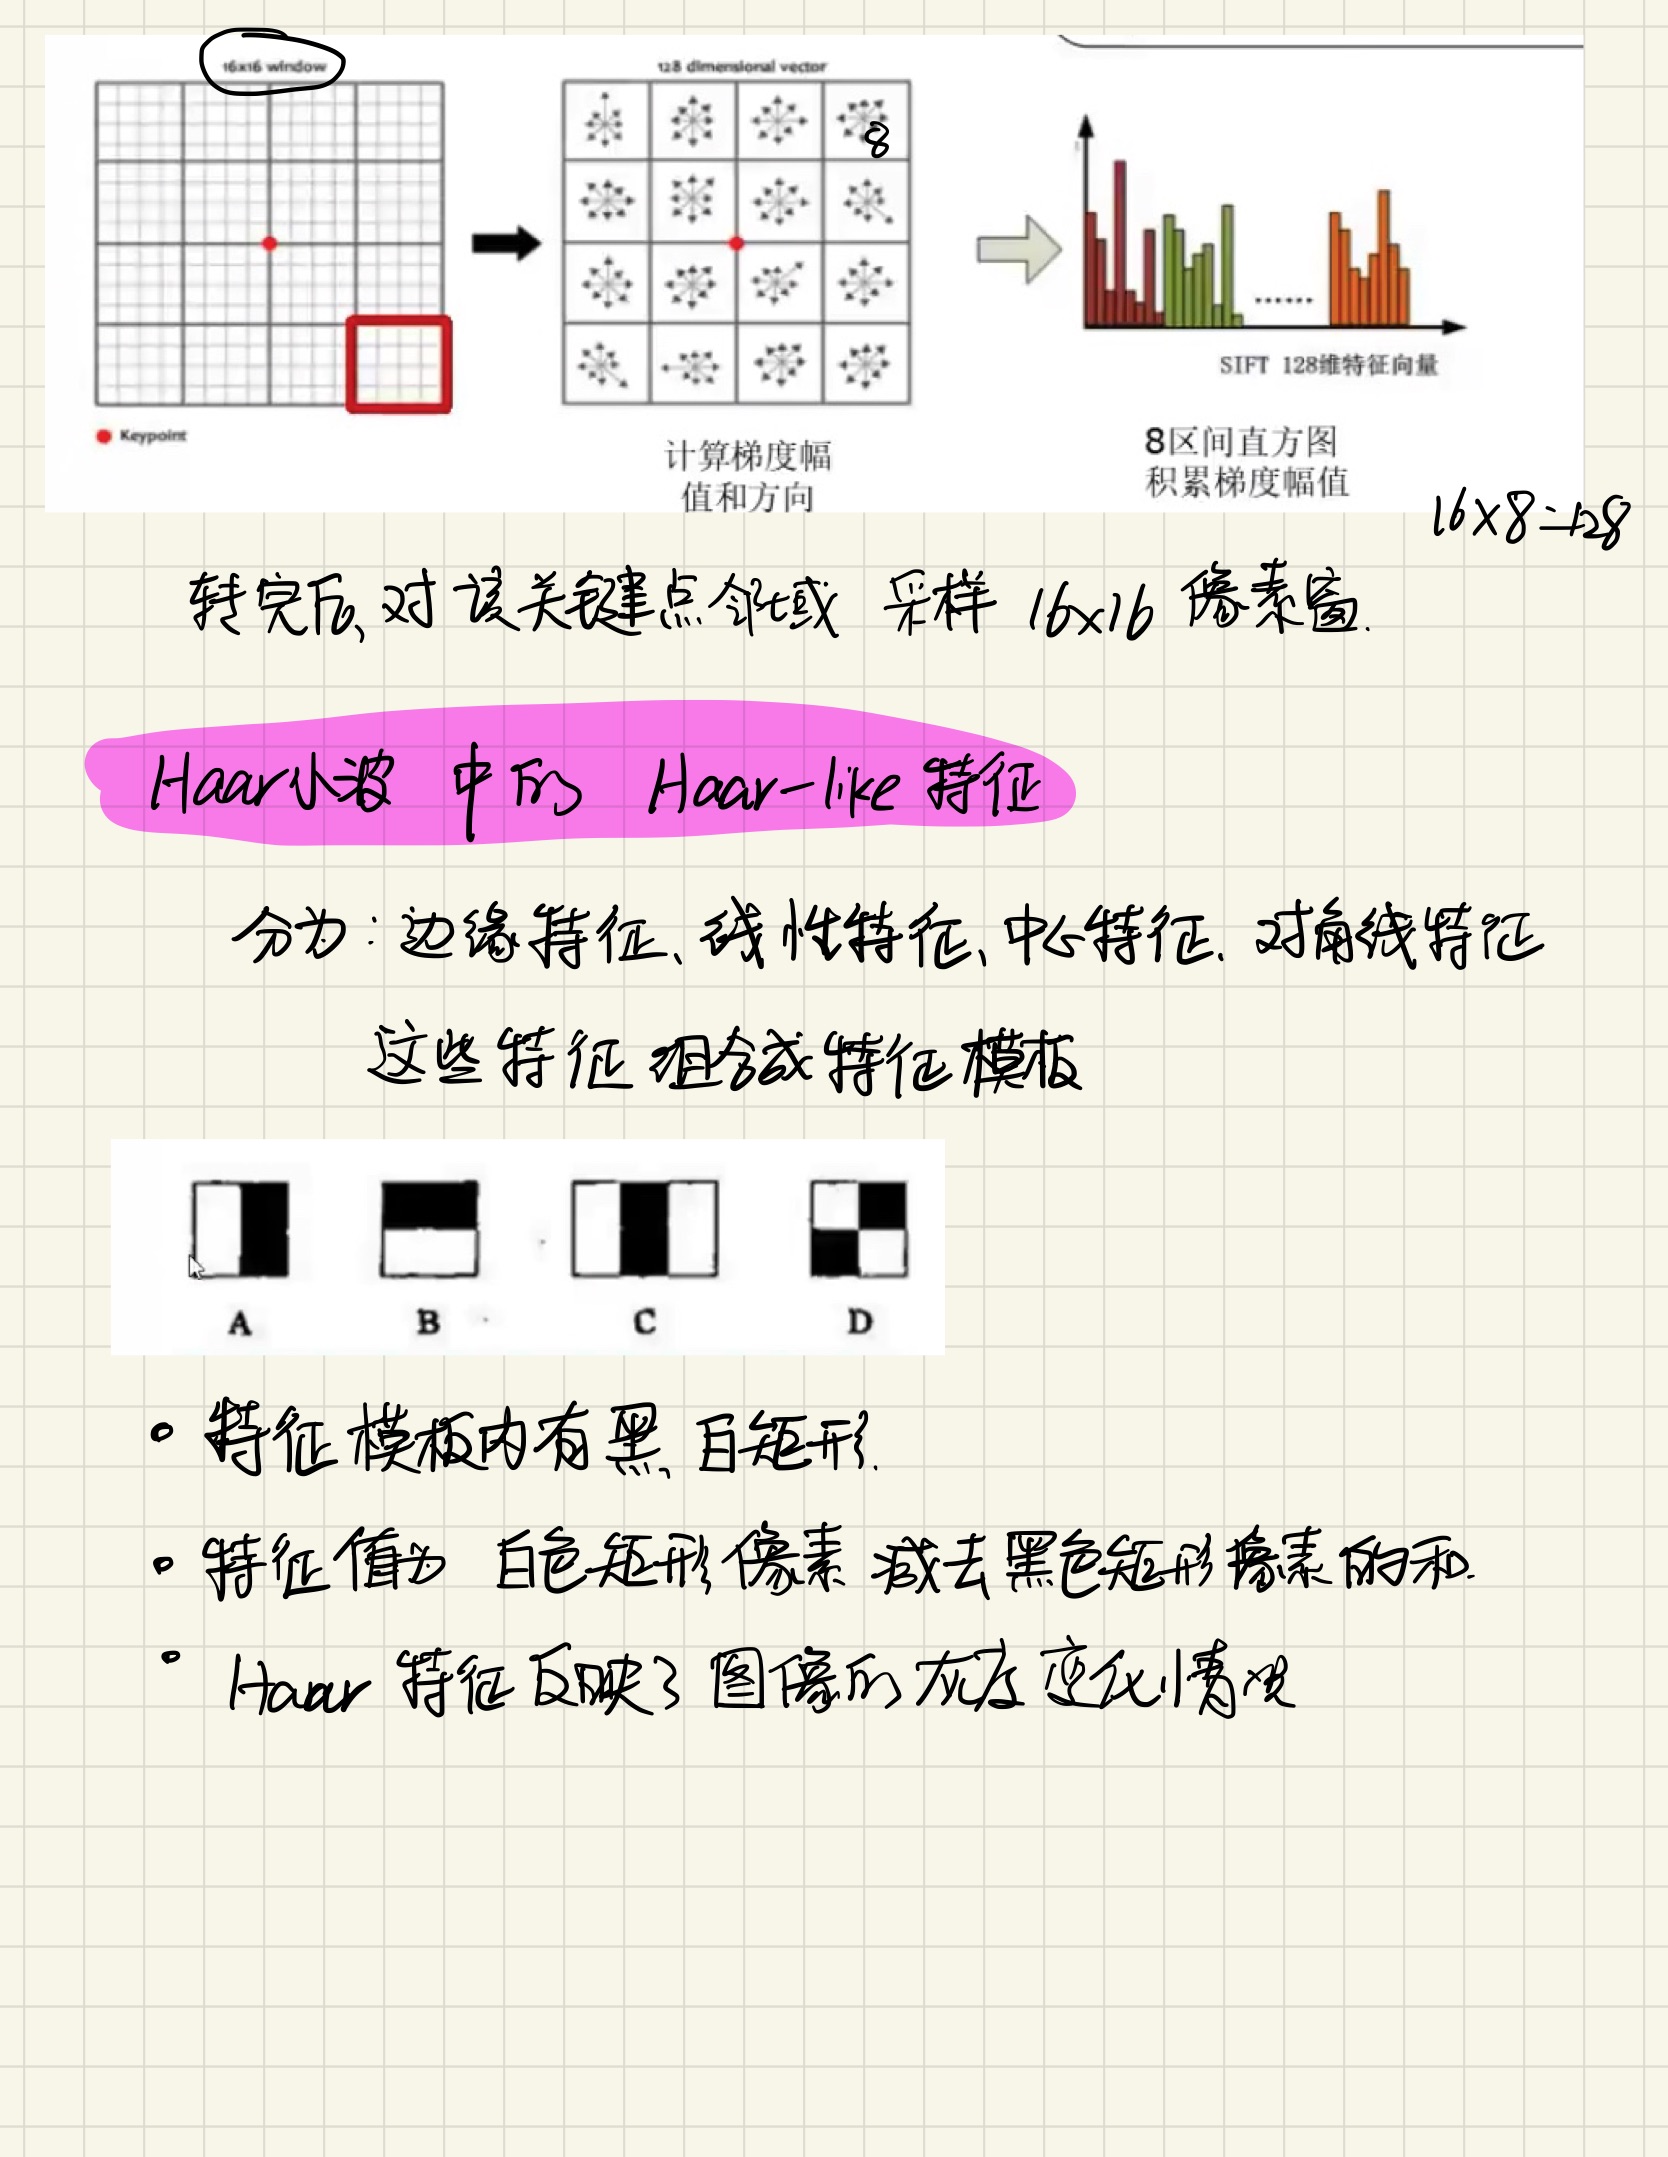 16x16 window
128 dimensional vector
8
Keypoint
计算梯度幅
值和方向
SIFT 128维特征向量
8区间直方图
积累梯度幅值
16×8=128
转完后,对该关键点邻域 采样 16×16 像素窗.
Haar小波 中的 Haar-like 特征
分为:边缘特征、线性特征、中心特征、对角线特征
这些特征组合成特征模板
A B C D
• 特征模板内有黑、白矩形.
• 特征值为 白色矩形像素 减去黑色矩形像素的和.
• Haar 特征反映了图像的灰度变化情况